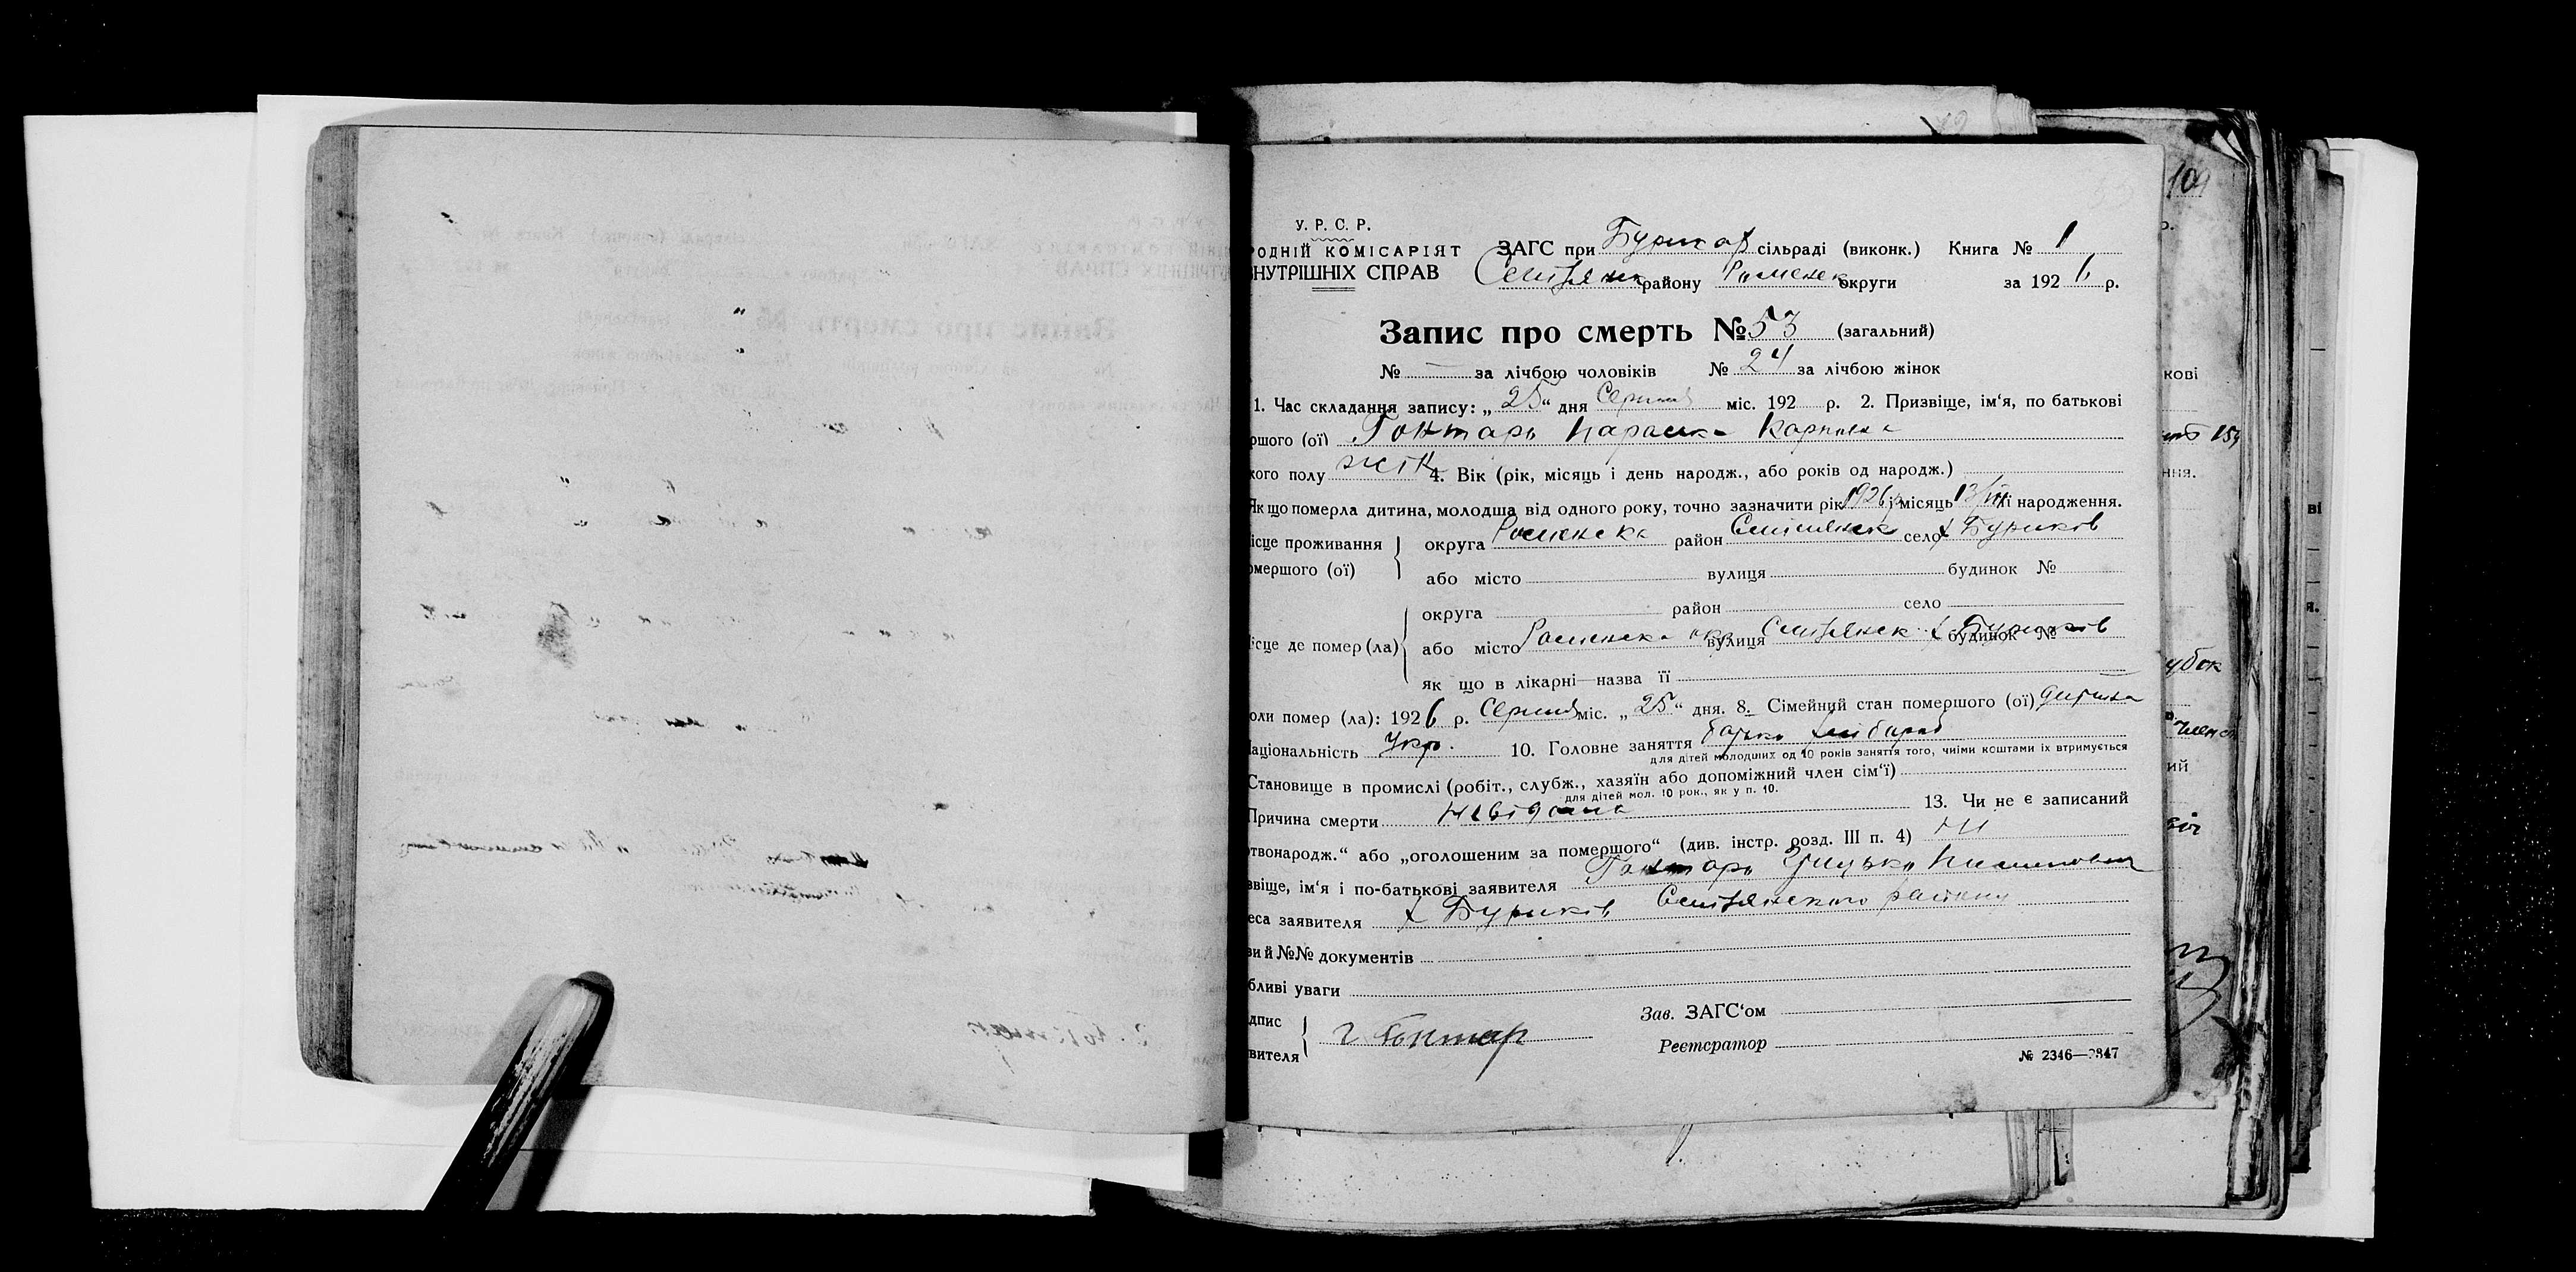 104
У. Р. С. Р.
РОДНІЙ КОМІСАРІЯТ ЗАГС при Бурков сільраді (виконк.) Книга № 1
НУТРІШНІХ СПРАВ району Роменск округи за 192 6 р.
Запис про смерть № 53 (загальний)
№ — за лічбою чоловіків № 24 за лічбою жінок
1. Час складання запису: „ 25 “ дня Серпня міс. 192 р. 2. Призвіще, ім'я, по батькові
ршого (ої) Гонтарь Параска Карпівна
кого полу жін 4. Вік (рік, місяць і день народж., або років од народж.)
Якщо померла дитина, молодша від одного року, точно зазначити рік 1926 р і місяць її народження.
ісце проживання округа Роменска район село х Буриків
омершого (ої) або місто вулиця будинок №
округа район село
ісце де помер (ла) або місто Роменска окр вулиця х Буриків будинок №
як що в лікарні—назва її
оли помер (ла): 192 6 р. Серпня міс. „ 25 “ дня. 8. Сімейний стан помершого (ої) дитина
аціональність Укр. 10. Головне заняття батько хлібороб
для дітей молодших од 10 років заняття того, чиїми коштами їх втримується
Становище в промислі (робіт., служб., хазяїн або допоміжний член сім'ї)
для дітей мол. 10 рок., як у п. 10.
Причина смерти Невідома 13. Чи не є записаний
твонародж.“ або „оголошеним за помершого“ (див. інстр. розд. III п. 4) Ні
звіще, ім'я і по-батькові заявителя Гонтарь Грицько
еса заявителя х Буриків района
ви й №№ документів
бливі уваги
Зав. ЗАГС'ом
дпис
вителя Г Гонтар
Реєстратор
№ 2346—2347